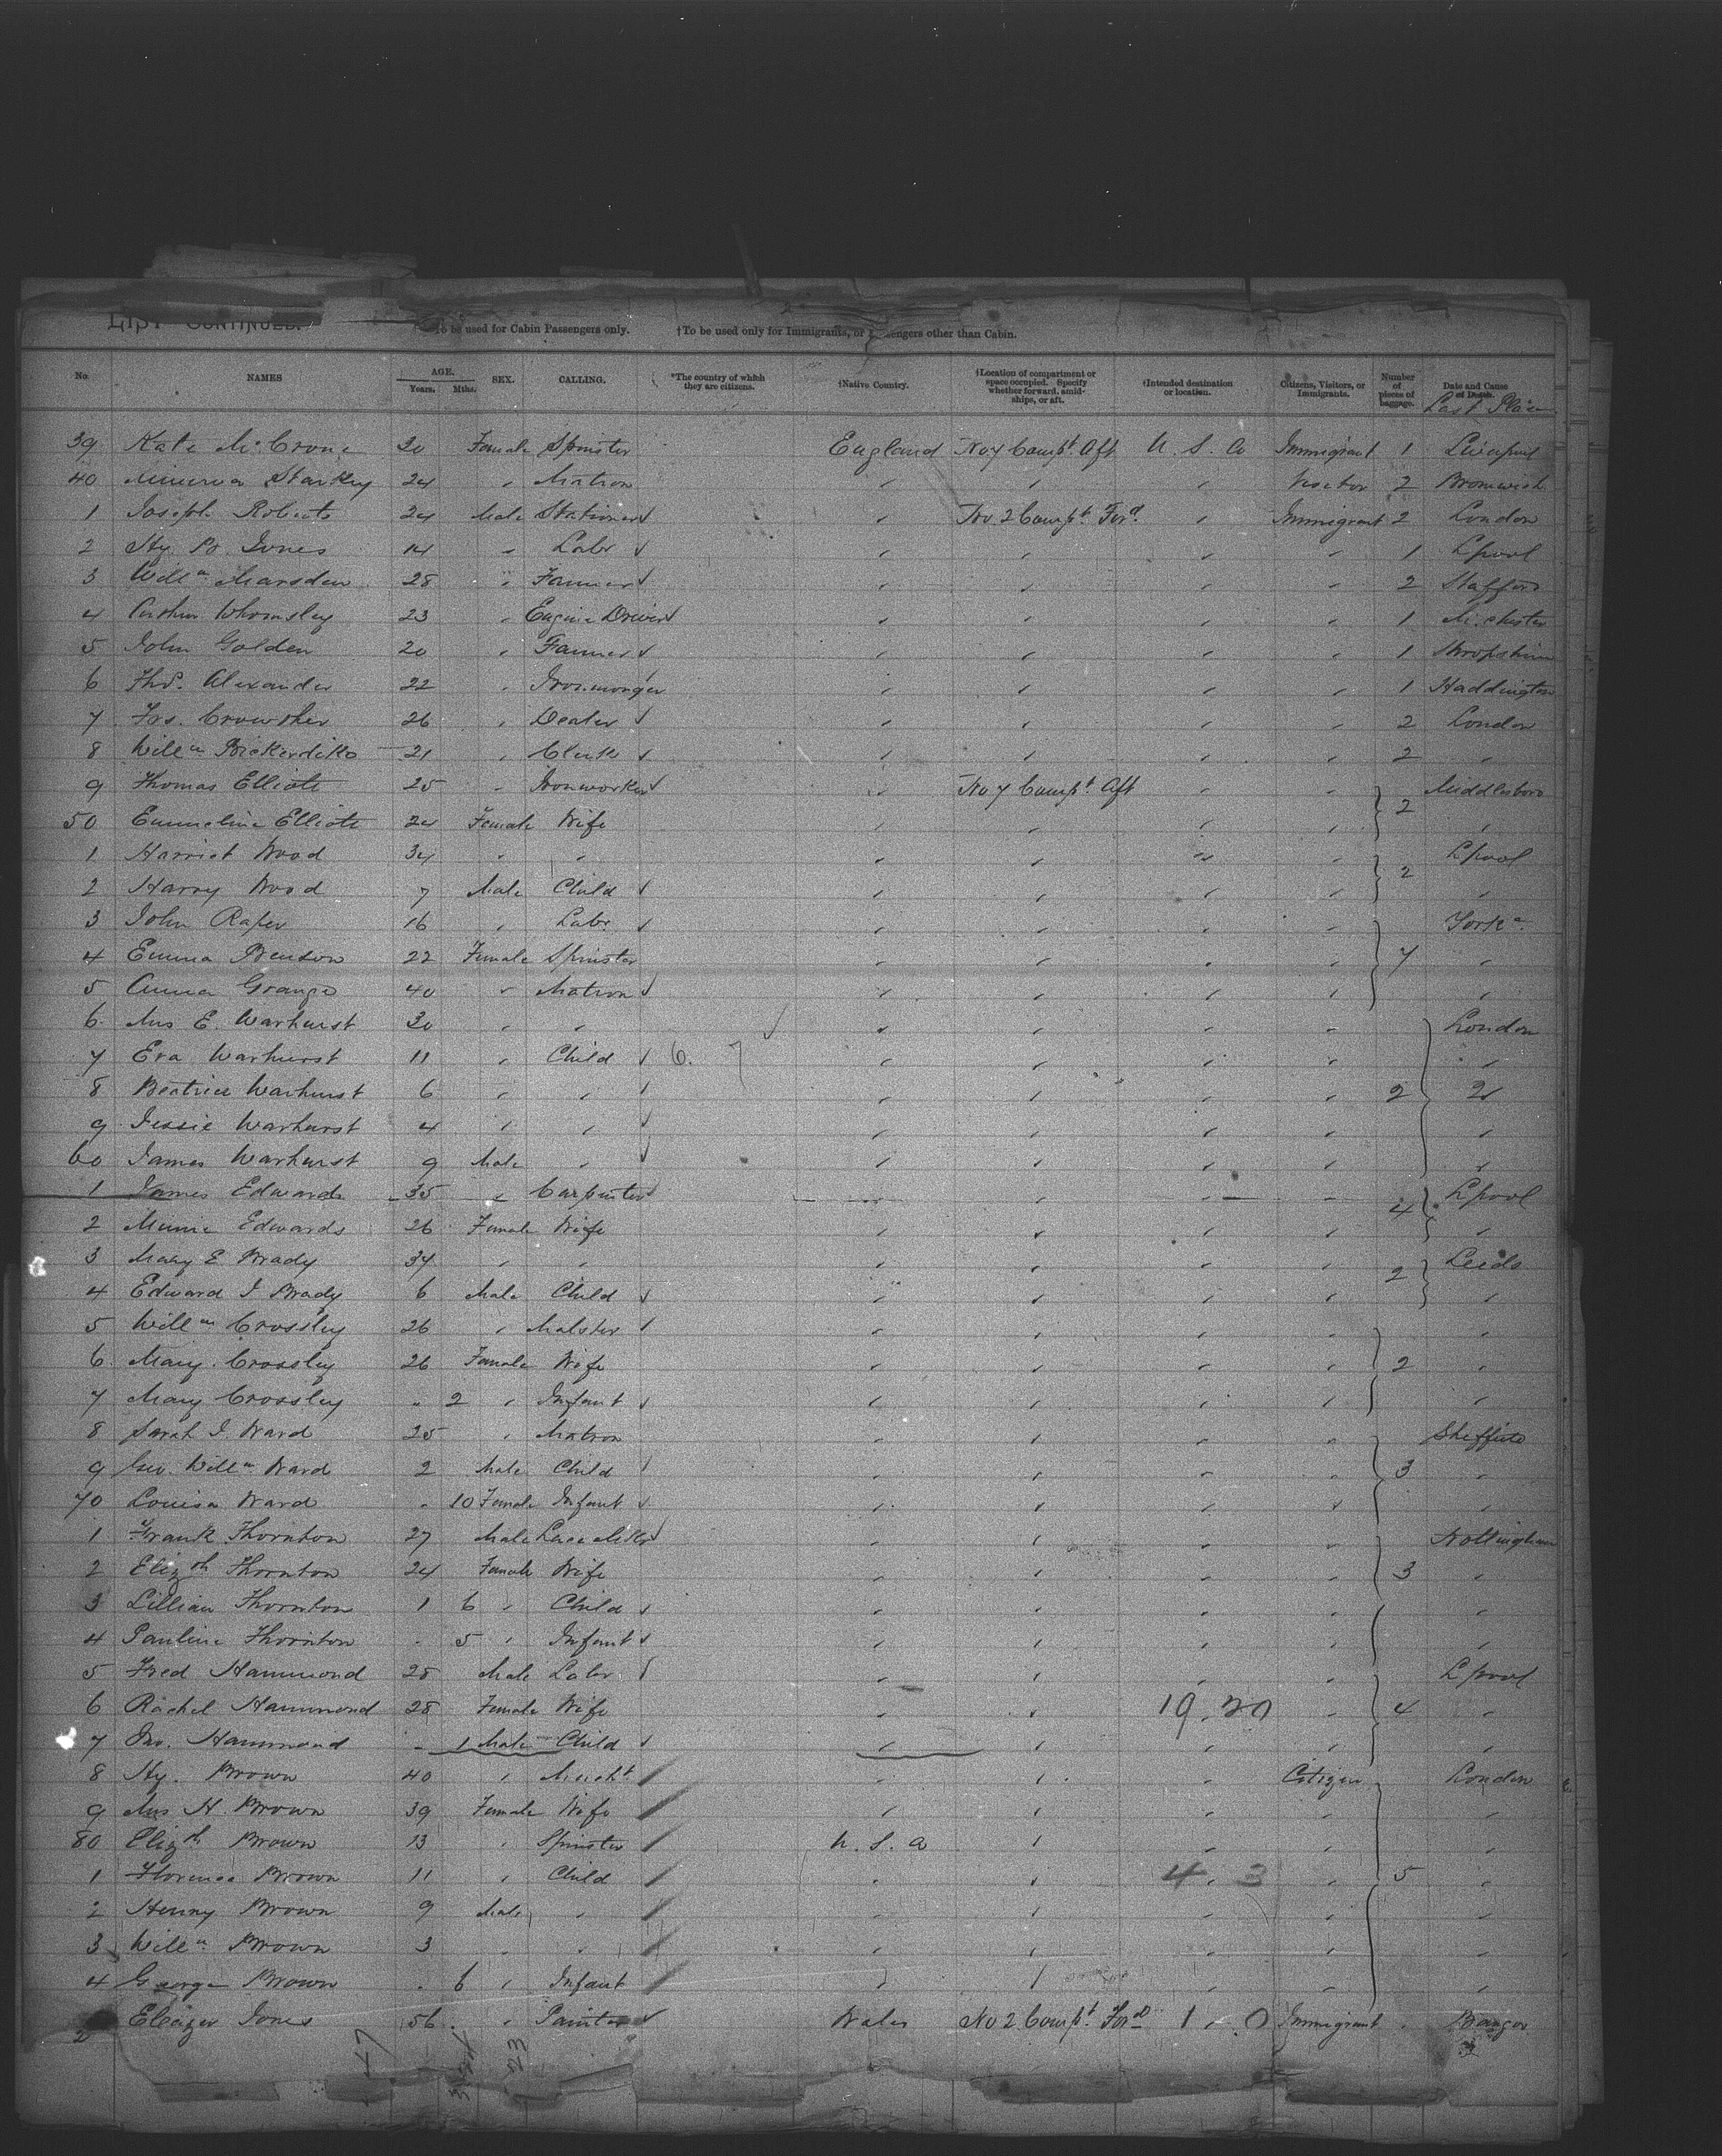 LIST CONTINUED.
To be used for Cabin Passengers only. †To be used only for Immigrants, or Passengers other than Cabin.
No. NAMES AGE. Years. Mths. SEX. CALLING. *The country of which they are citizens. †Native Country. †Location of compartment or space occupied. Specify whether forward, amidships, or aft. †Intended destination or location. Citizens, Visitors, or Immigrants. Number of pieces of baggage. Date and Cause of Death. Last Place
39 Kate McCrone 20 Female Spinster England No 7 Compt. Aft U. S. A Immigrant 1 Liverpool
40 Minerva Starkey 24 " Matron " " " Visitor 2 Bromwich
1 Joseph Roberts 24 Male Stationer " No. 2 Compt. Ford. " Immigrant 2 London
2 Hy. B. Jones 14 " Labr " " " " 1 Lpool
3 Willm Marsden 28 " Farmer " " " " 2 Stafford
4 Arthur Whomsley 23 " Engine Driver " " " " 1 M.chester
5 John Golden 20 " Farmer " " " " 1 Shropshire
6 Thos. Alexander 22 " Ironmonger " " " " 1 Haddington
7 Jos. Crowther 26 " Dealer " " " " 2 London
8 Willm Bickerdike 21 " Clerk " " " " 2 "
9 Thomas Elliott 25 " Ironworker " No 7 Compt. Aft " " Middlesboro
50 Emmeline Elliott 24 Female Wife " " " " 2 "
1 Harriet Wood 34 " " " " " " Lpool
2 Harry Wood 7 Male Child " " " " 2 "
3 John Raper 16 " Labr " " " " York
4 Emma Benson 22 Female Spinster " " " " 7 "
5 Anna Grange 40 " Matron " " " " "
6 Mrs E. Warhurst 30 " " " " " " London
7 Eva Warhurst 11 " Child 6. 7 " " " " "
8 Beatrice Warhurst 6 " " " " " " 2 "
9 Jessie Warhurst 4 " " " " " " "
60 James Warhurst 9 Male " " " " " "
1 James Edwards 35 " Carpenter " " " " 4 Lpool
2 Minnie Edwards 26 Female Wife " " " " "
3 Mary E Brady 34 " " " " " " 2 Leeds
4 Edward J Brady 6 Male Child " " " " "
5 Willm Crossley 26 " Malster " " " " "
6 Mary Crossley 26 Female Wife " " " " 2 "
7 Mary Crossley " 2 " Infant " " " " "
8 Sarah J. Ward 25 " Matron " " " " Sheffield
9 Geo. Willm Ward 2 Male Child " " " " 3 "
70 Louisa Ward " 10 Female Infant " " " " "
1 Frank Thornton 27 Male Lace Mkr " " " " Nottingham
2 Elizth Thornton 24 Female Wife " " " " 3 "
3 Lillian Thornton 1 6 " Child " " " " "
4 Pauline Thornton " 5 " Infant " " " " "
5 Fred Hammond 28 Male Labr " " " " Lpool
6 Rachel Hammond 28 Female Wife " " 19. 20 " 4 "
7 Jno. Hammond " 1 Male Child " " " " "
8 Hy. Brown 40 " Mercht " " " Citizen London
9 Mrs H. Brown 39 Female Wife " " " " "
80 Elizth Brown 13 " Spinster U. S. A " " " "
1 Florence Brown 11 " Child " " 4. 3 " 5 "
2 Henry Brown 9 Male " " " " " "
3 Willm Brown 3 " " " " " " "
4 George Brown " 6 " Infant " " " " "
Eleazer Jones 56 " Painter Wales No 2 Compt. Ford 1 . 0 Immigrant " Bangor
47 23